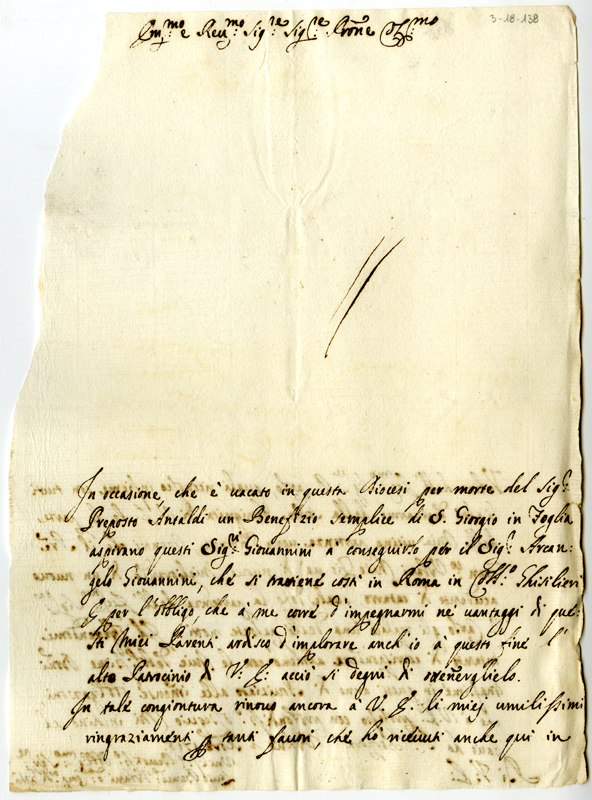 3-18-138
Em.mo e Reu.mo Sig.re Sig.re Prõne Col.mo
In occasione, che è uacato in questa Diocesi per morte del Sig.r
Preposto Antaldi un Benefizio semplice di S. Giorgio in Foglia
aspirano questi Sig.ri Giouannini a conseguirlo per il Sig.r Arcan-
gelo Giouannini, che si trattiene costì in Roma in Coll.o Ghisilieri
E per l'obbligo, che à me corre d'impegnarmi ne' uantaggi di que-
sti Miei Parenti ardisco d'implorare anch'io à questo fine l'
alto Patrocinio di V: E: acciò si degni di ottenerglielo.
In tale congiontura rinouo ancora à V. E. li miej umilissimi
ringraziamenti p tanti fauori, che hò riceuuti anche qui in